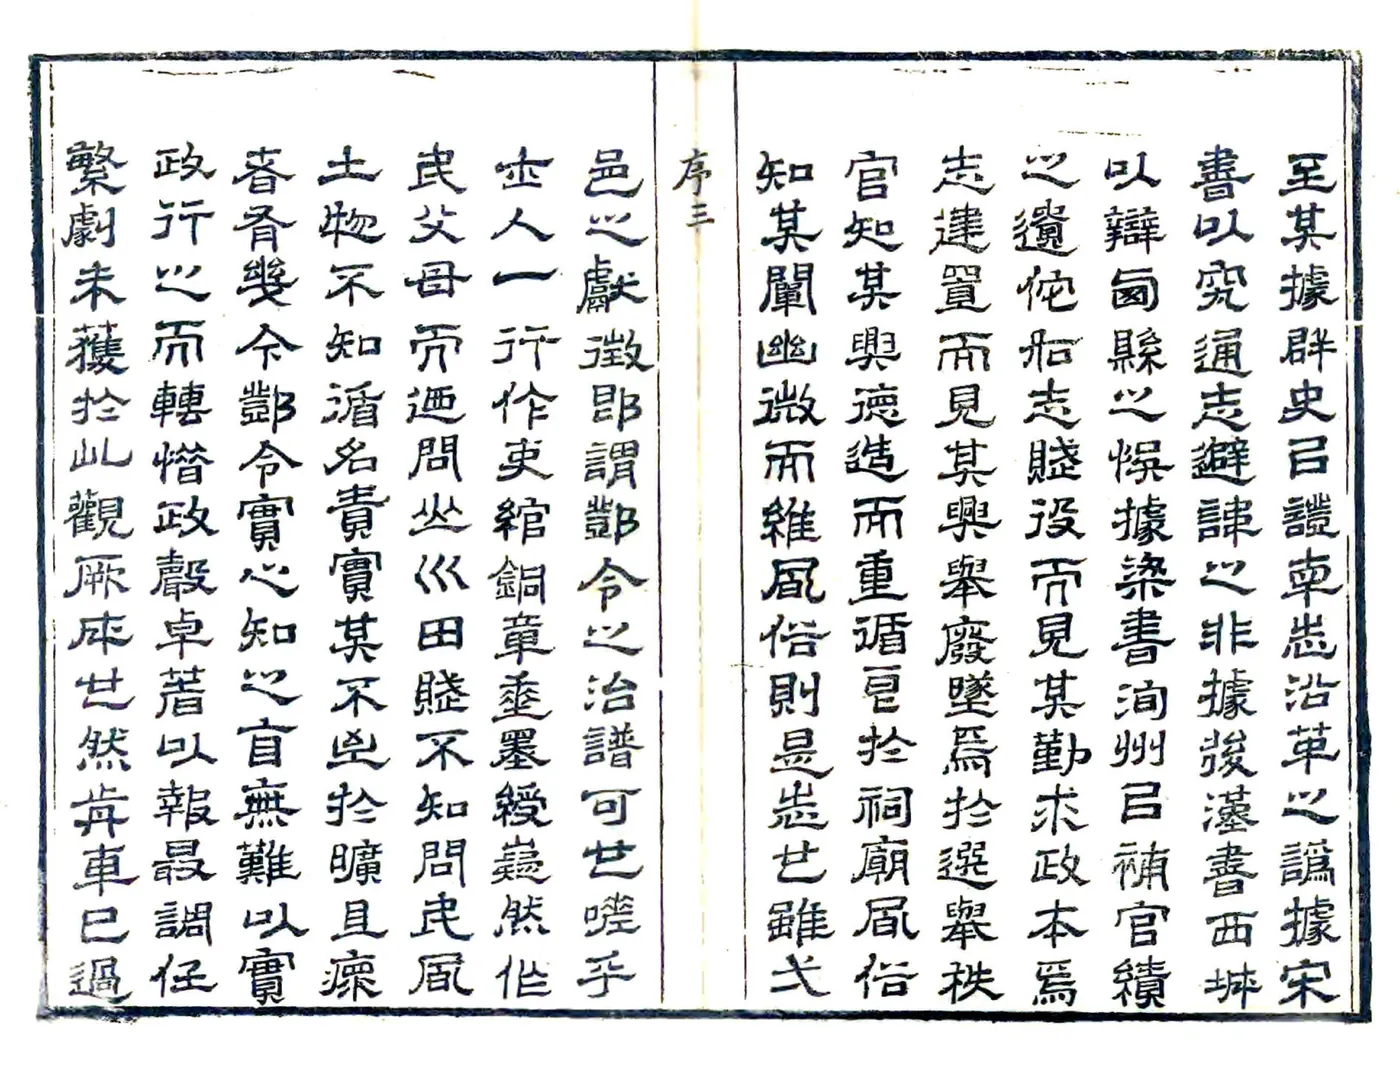 至其據群史㠯證車志沿革之譌據宋
書以究通志避諱之非據後漢書西域
以辯匈縣之悞據梁書洵州㠯補官績
之遺佗如志賤役而見其勤求政本焉
志建置而見其興舉廢墜焉於選舉秩
官知其興德造而重循㠯於祠廟風俗
知其闡幽微而維風俗則是志也雖弌
序三
邑之獻徵即謂酆令之治譜可也嗟乎
士人一行作吏綰銅章垂墨綬嶷然作
民父母而迺問山巛田賤不知問民風
土物不知循名責實其不至於曠且瘝
者有幾今酆令實心知之自無難以實
政行之而轉惜政聲卓著以報最調任
繁劇未獲於此觀厥成也然莾車已過